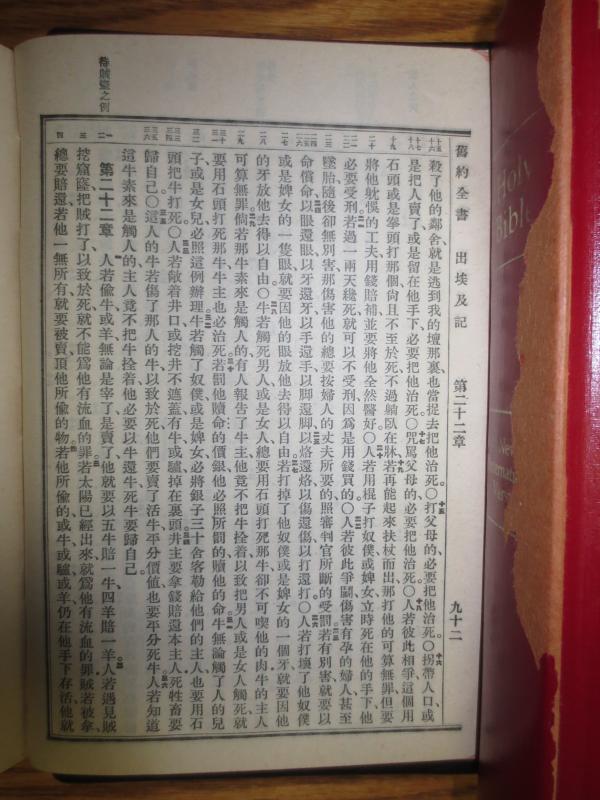 Holy
Bible
New
舊約全書 出埃及記 第二十二章 九十二
殺了他的鄰舍就是逃到我的壇那裏也當捉去把他治死○打父母的必要把他治死○拐帶人口或
是把人賣了或是留在他手下必要把他治死○咒罵父母的必要把他治死○人若彼此相爭這個用
石頭或是拳頭打那個尙且不至於死不過躺臥在牀若再能起來扶杖而出那打他的可算無罪但要
將他躭悞的工夫用錢賠補並要將他全然醫好○人若用棍子打奴僕或婢女立時死在他的手下他
必要受刑若過一兩天纔死就可以不受刑因爲是用錢買的○人若彼此爭鬬傷害有孕的婦人甚至
墜胎隨後卻無別害那傷害他的總要按婦人的丈夫所要的照審判官所斷的受罰若有別害就要以
命償命以眼還眼以牙還牙以手還手以脚還脚以烙還烙以傷還傷以打還打○人若打壞了他奴僕
或是婢女的一隻眼就要因他的眼放他去得以自由若打掉了他奴僕或是婢女的一個牙就要因他
的牙放他去得以自由○牛若觸死男人或是女人總要用石頭打死那牛卻不可喫他的肉牛的主人
可算無罪倘若那牛素來是觸人的有人報告了牛主他竟不把牛拴着以致把男人或是女人觸死就
要用石頭打死那牛牛主也必治死若罰他贖命的價銀他必照所罰的贖他的命牛無論觸了人的兒
子或是女兒必照這例辦理牛若觸了奴僕或是婢女必將銀子三十舍客勒給他們的主人也要用石
頭把牛打死○人若敞着井口或挖井不遮蓋有牛或驢掉在裏頭井主要拿錢賠還本主人死牲畜要
歸自己○這人的牛若傷了那人的牛以致於死他們要賣了活牛平分價値也要平分死牛人若知道
這牛素來是觸人的主人竟不把牛拴着他必要以牛還牛死牛要歸自己
第二十二章 人若偷牛或羊無論是宰了是賣了他就要以五牛賠一牛四羊賠一羊人若遇見賊
挖窟窿把賊打了以致於死就不能爲他有流血的罪若太陽已經出來就爲他有流血的罪賊若被拿
總要賠還若他一無所有就要被賣頂他所偷的物若他所偷的或牛或驢或羊仍在他手下存活他就
待賊盜之例